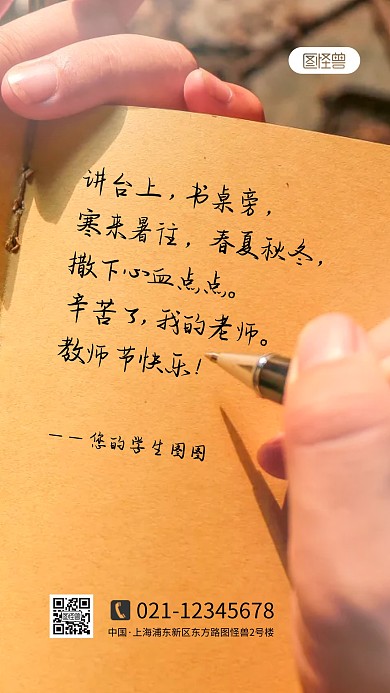 图怪兽
讲台上，书桌旁，
寒来暑往，春夏秋冬，
撒下心血点点。
辛苦了，我的老师。
教师节快乐！
——您的学生图图
图怪兽
021-12345678
中国·上海浦东新区东方路图怪兽2号楼